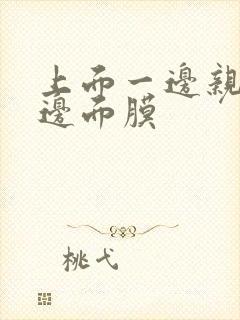 上而一邊親
邊而膜
桃弋